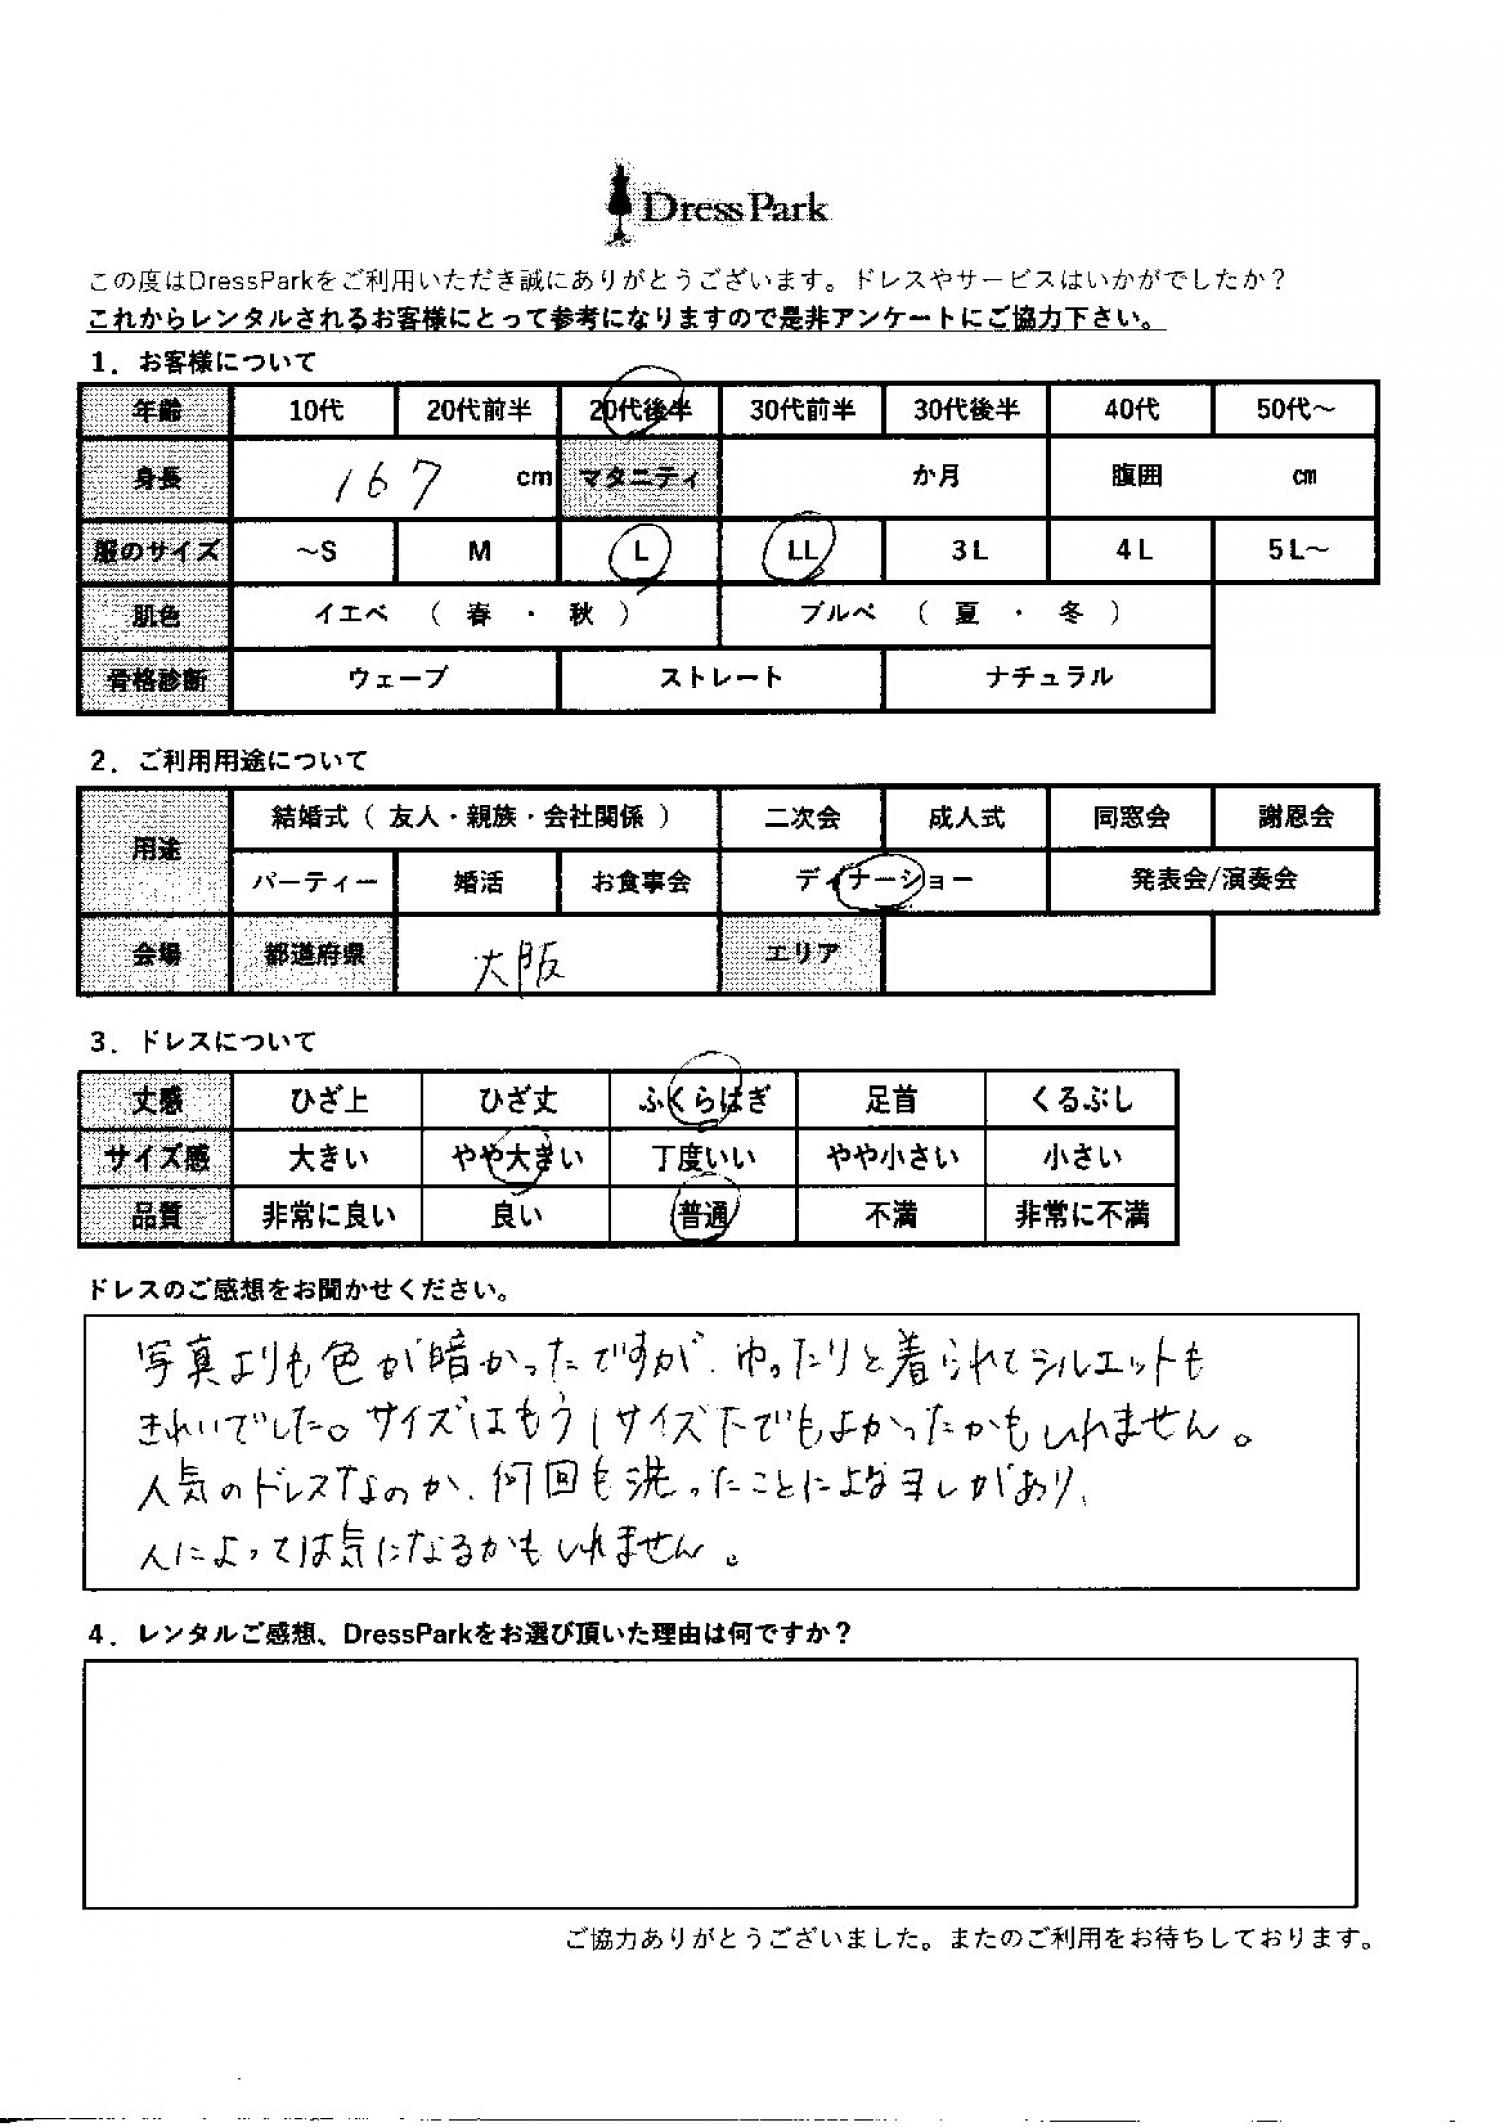 DressPark
この度はDressParkをご利用いただき誠にありがとうございます。ドレスやサービスはいかがでしたか？
これからレンタルされるお客様にとって参考になりますので是非アンケートにご協力下さい。
1．お客様について
年齢 10代 20代前半 20代後半 30代前半 30代後半 40代 50代～
身長 167 cm マタニティ か月 腹囲 cm
服のサイズ ～S M L LL 3L 4L 5L～
肌色 イエベ （ 春 ・ 秋 ） ブルベ （ 夏 ・ 冬 ）
骨格診断 ウェーブ ストレート ナチュラル
2．ご利用用途について
用途 結婚式（ 友人・親族・会社関係 ） 二次会 成人式 同窓会 謝恩会
パーティー 婚活 お食事会 ディナーショー 発表会/演奏会
会場 都道府県 大阪 エリア
3．ドレスについて
丈感 ひざ上 ひざ丈 ふくらはぎ 足首 くるぶし
サイズ感 大きい やや大きい 丁度いい やや小さい 小さい
品質 非常に良い 良い 普通 不満 非常に不満
ドレスのご感想をお聞かせください。
写真よりも色が暗かったですが、ゆったりと着られてシルエットも
きれいでした。サイズはもう1サイズ下でもよかったかもしれません。
人気のドレスなのか、何回も洗ったことによるヨレがあり、
人によっては気になるかもしれません。
4．レンタルご感想、DressParkをお選び頂いた理由は何ですか？
ご協力ありがとうございました。またのご利用をお待ちしております。